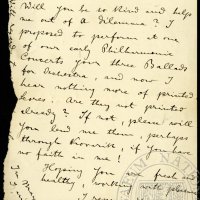 Will you be so kind and help
me out of a dilemma? I
proposed to perform at one
of our early Philharmonic
Concerts your three Ballads
for Orchestra, and now I
hear nothing more of printed
scores. Are they not printed
already? If not, please will
you lend me them, perhaps
through Novavill, if you have
no faith in me!
Hoping you are fresh and
healthy, working with pleasure
I